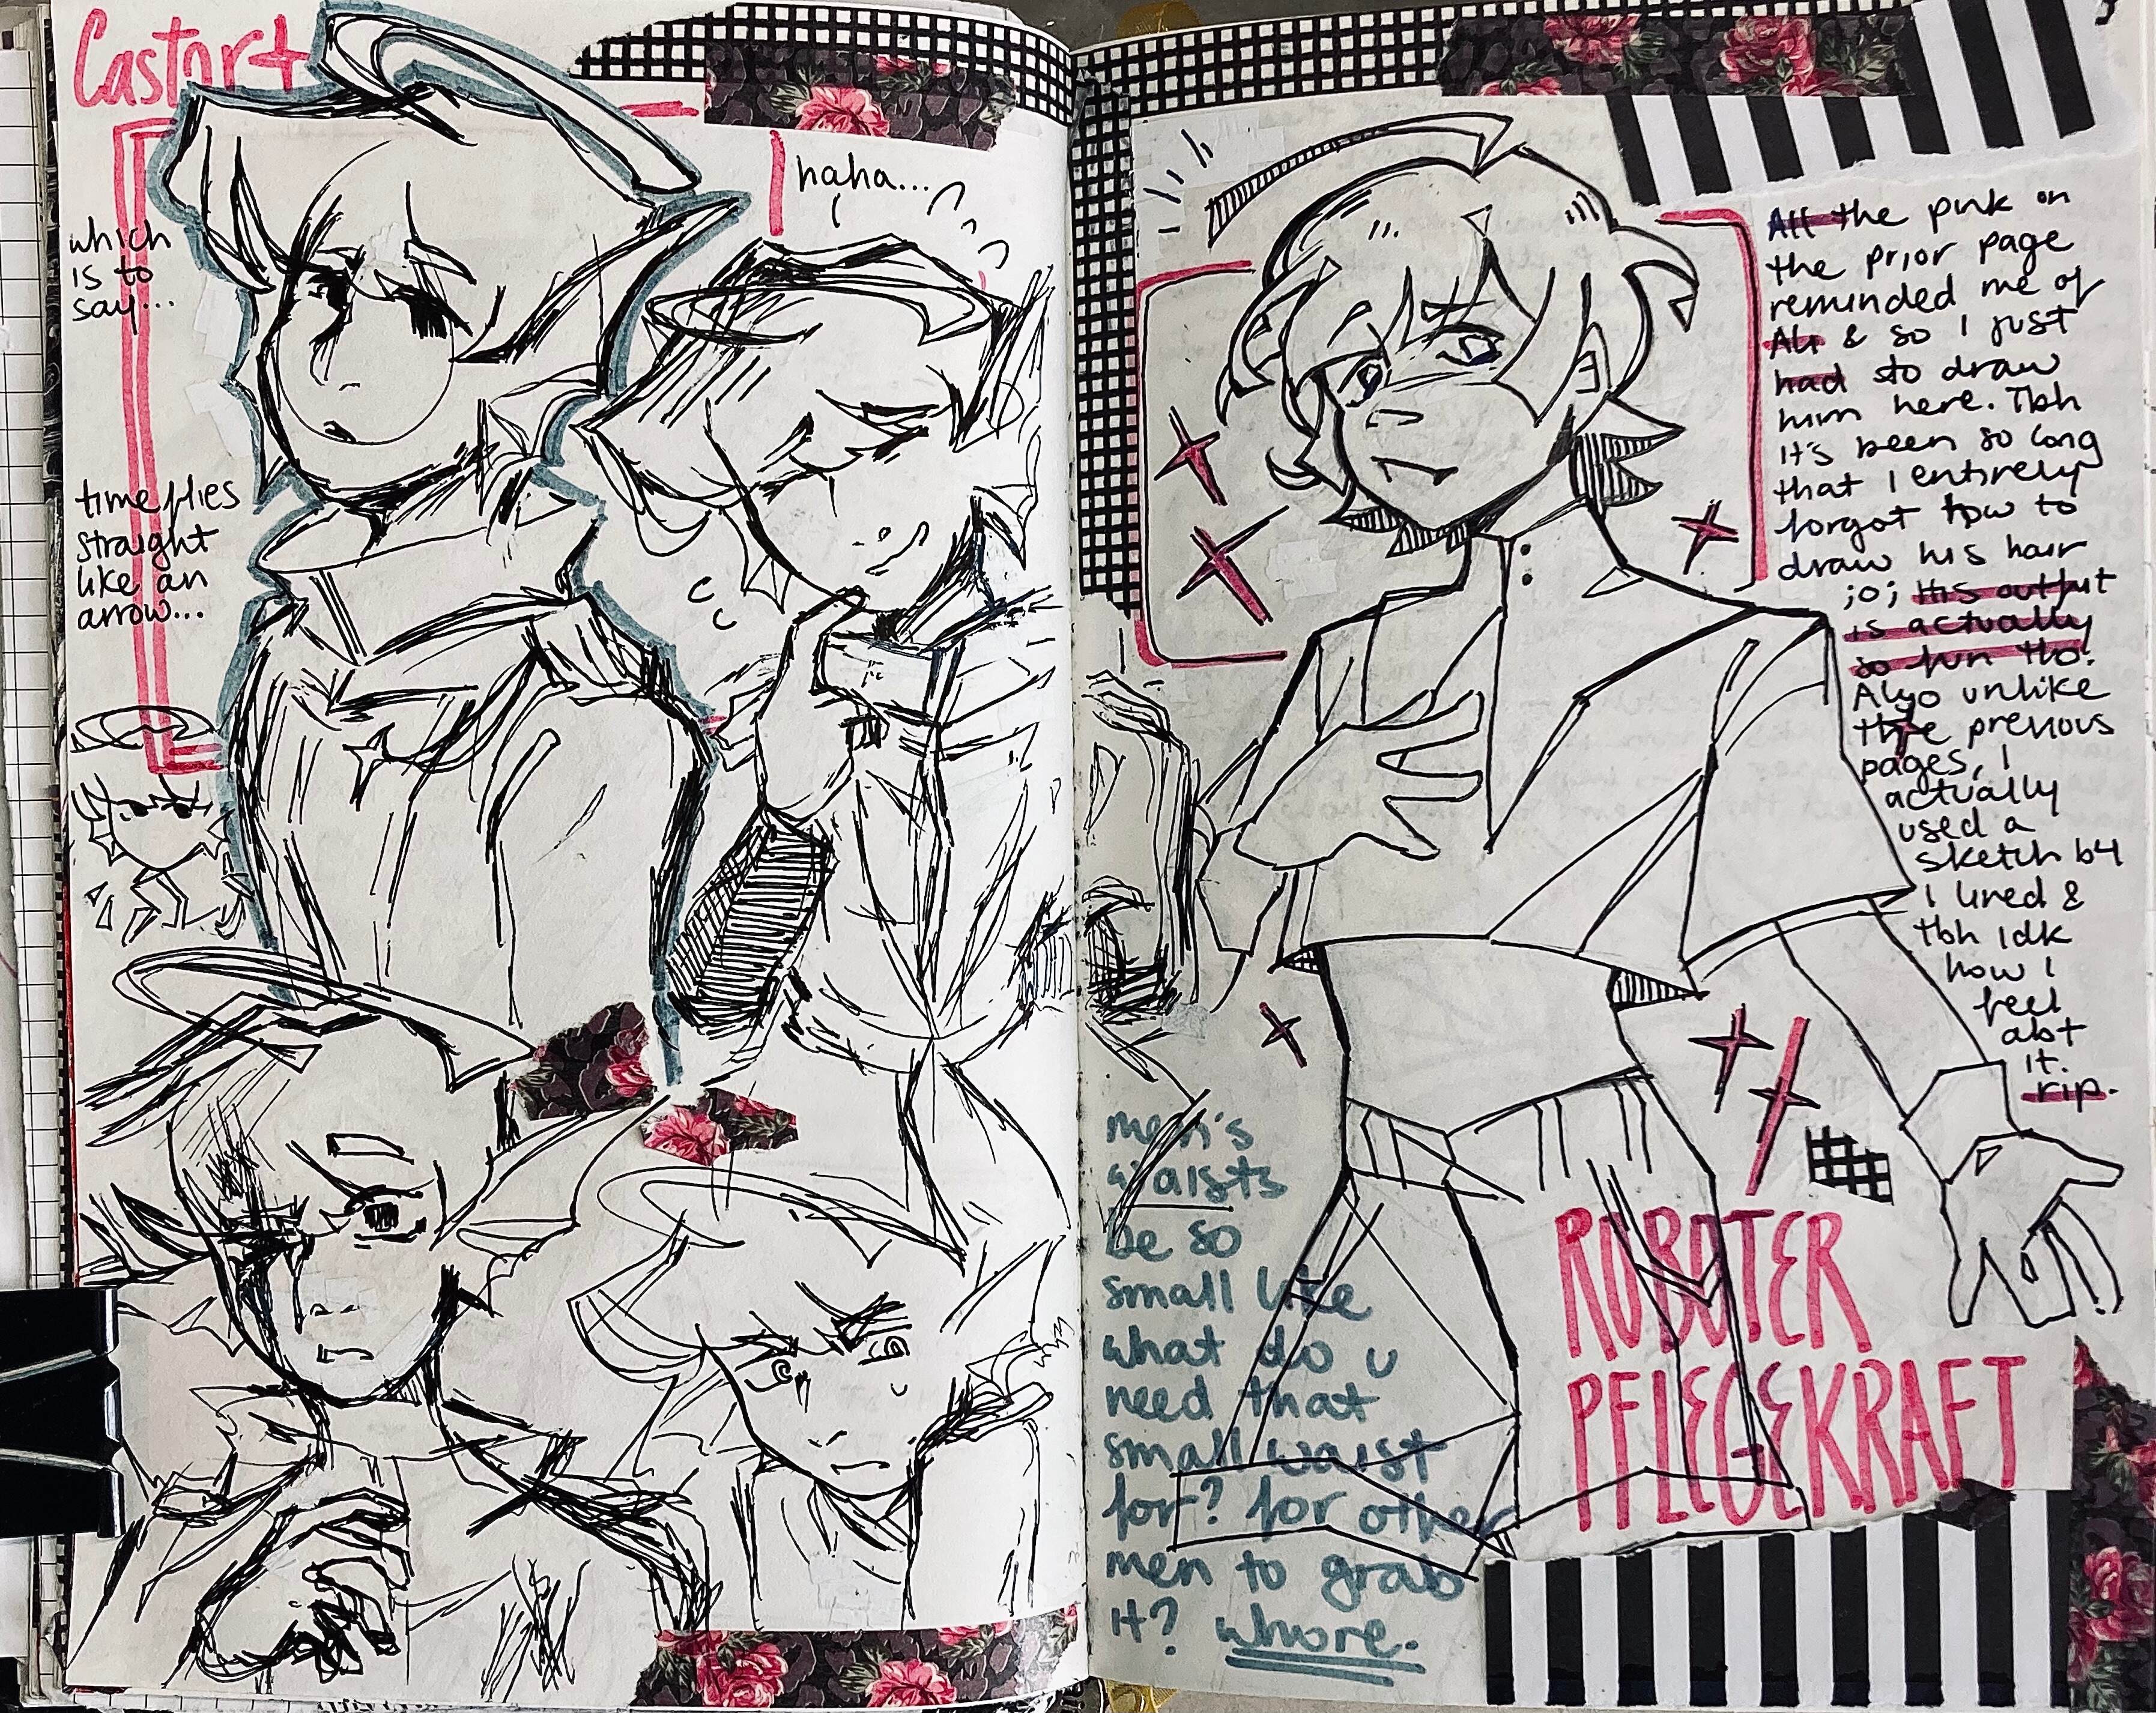 Castor+
which
is to
say...
time flies
straight
like an
arrow...
haha...
All the pink on
the prior page
reminded me of
Ali & so I just
had to draw
him here. Tbh
it's been so long
that I entirely
forgot how to
draw his hair
;o; His outfit
is actually
so fun tho!
Also unlike
the previous
pages, I
actually
used a
sketch b4
I lined &
tbh idk
how I
feel
abt
it.
rip.
men's
waists
be so
small like
what do u
need that
small waist
for? for other
men to grab
it? whore.
ROBOTER
PFLEGEKRAFT